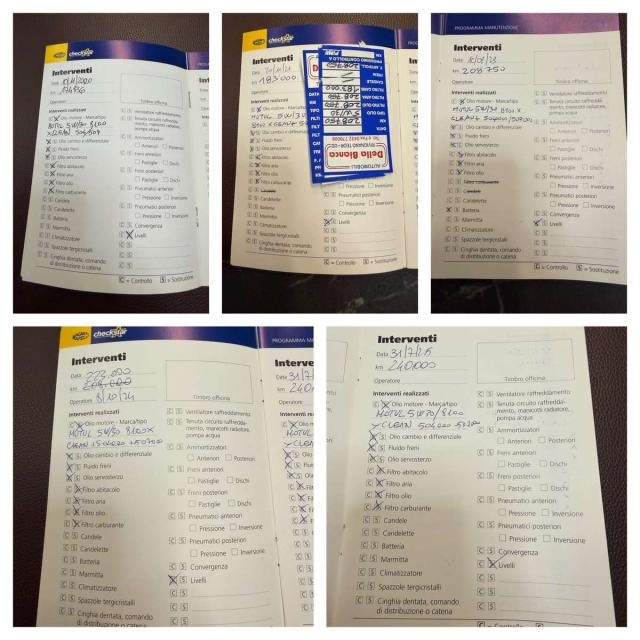 checkstar
Interventi
Data 10/11/2020
km 174936
Operatore
Timbro officina
Interventi realizzati
C S Olio motore - Marca/tipo
MOTUL 5W30 8100
C S Olio cambio e differenziale
C S Fluido freni
C S Olio servosterzo
C S Filtro abitacolo
C S Filtro aria
C S Filtro olio
C S Filtro carburante
C S Candele
C S Candelette
C S Batteria
C S Marmitta
C S Climatizzatore
C S Spazzole tergicristalli
C S Cinghia dentata, comando
di distribuzione o catena
C S Ventilatore raffreddamento
C S Tenuta circuito raffredda-
mento, manicotti radiatore,
pompa acqua
C S Ammortizzatori
Anteriori Posteriori
C S Freni anteriori
Pastiglie Dischi
C S Freni posteriori
Pastiglie Dischi
C S Pneumatici anteriori
Pressione Inversione
C S Pneumatici posteriori
Pressione Inversione
C S Convergenza
C S Livelli
C = Controllo S = Sostituzione
checkstar
Interventi
Data
km 183000
Operatore
Interventi realizzati
C S Olio motore
C S Olio cambio
C S Fluido freni
C S Olio servosterzo
C S Filtro abitacolo
C S Filtro aria
C S Filtro olio
C S Filtro carburante
C S Candele
C S Candelette
C S Batteria
C S Marmitta
C S Climatizzatore
C S Spazzole tergicristalli
C S Cinghia dentata, comando
di distribuzione o catena
AUTOMOBILI
Della Bianca
Pressione Inversione
C S Pneumatici posteriori
Pressione Inversione
C S Convergenza
C S Livelli
C = Controllo S = Sostituzione
PROGRAMMA MANUTENZIONE
Interventi
Data
km 208750
Operatore
Timbro officina
Interventi realizzati
C S Olio motore - Marca/tipo
MOTUL 5W30 8100 X
C S Olio cambio e differenziale
C S Fluido freni
C S Olio servosterzo
C S Filtro abitacolo
C S Filtro aria
C S Filtro olio
C S Filtro carburante
C S Candele
C S Candelette
C S Batteria
C S Marmitta
C S Climatizzatore
C S Spazzole tergicristalli
C S Cinghia dentata, comando
di distribuzione o catena
C S Ventilatore raffreddamento
C S Tenuta circuito raffredda-
mento, manicotti radiatore,
pompa acqua
C S Ammortizzatori
Anteriori Posteriori
C S Freni anteriori
Pastiglie Dischi
C S Freni posteriori
Pastiglie Dischi
C S Pneumatici anteriori
Pressione Inversione
C S Pneumatici posteriori
Pressione Inversione
C S Convergenza
C S Livelli
C = Controllo S = Sostituzione
checkstar
Interventi
Data 223.000
km
Operatore 8/10/24
Timbro officina
Interventi realizzati
C S Olio motore - Marca/tipo
MOTUL 5W30 8100X
C S Olio cambio e differenziale
C S Fluido freni
C S Olio servosterzo
C S Filtro abitacolo
C S Filtro aria
C S Filtro olio
C S Filtro carburante
C S Candele
C S Candelette
C S Batteria
C S Marmitta
C S Climatizzatore
C S Spazzole tergicristalli
C S Cinghia dentata, comando
di distribuzione o catena
C S Ventilatore raffreddamento
C S Tenuta circuito raffredda-
mento, manicotti radiatore,
pompa acqua
C S Ammortizzatori
Anteriori Posteriori
C S Freni anteriori
Pastiglie Dischi
C S Freni posteriori
Pastiglie Dischi
C S Pneumatici anteriori
Pressione Inversione
C S Pneumatici posteriori
Pressione Inversione
C S Convergenza
C S Livelli
Interventi
Data 31/7/25
km 240.000
Operatore
Timbro officina
Interventi realizzati
C S Olio motore - Marca/tipo
MOTUL 5W30 8100
X CLEAN
C S Olio cambio e differenziale
C S Fluido freni
C S Olio servosterzo
C S Filtro abitacolo
C S Filtro aria
C S Filtro olio
C S Filtro carburante
C S Candele
C S Candelette
C S Batteria
C S Marmitta
C S Climatizzatore
C S Spazzole tergicristalli
C S Cinghia dentata, comando
di distribuzione o catena
C S Ventilatore raffreddamento
C S Tenuta circuito raffredda-
mento, manicotti radiatore,
pompa acqua
C S Ammortizzatori
Anteriori Posteriori
C S Freni anteriori
Pastiglie Dischi
C S Freni posteriori
Pastiglie Dischi
C S Pneumatici anteriori
Pressione Inversione
C S Pneumatici posteriori
Pressione Inversione
C S Convergenza
C S Livelli